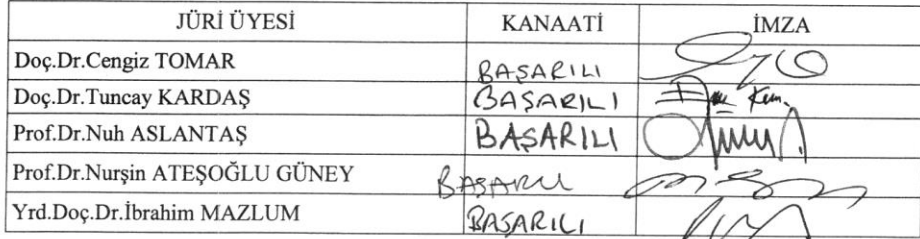 JÜRİ ÜYESİ KANAATİ İMZA
Doç.Dr.Cengiz TOMAR BAŞARILI
Doç.Dr.Tuncay KARDAŞ BAŞARILI
Prof.Dr.Nuh ASLANTAŞ BAŞARILI
Prof.Dr.Nurşin ATEŞOĞLU GÜNEY BAŞARILI
Yrd.Doç.Dr.İbrahim MAZLUM BAŞARILI